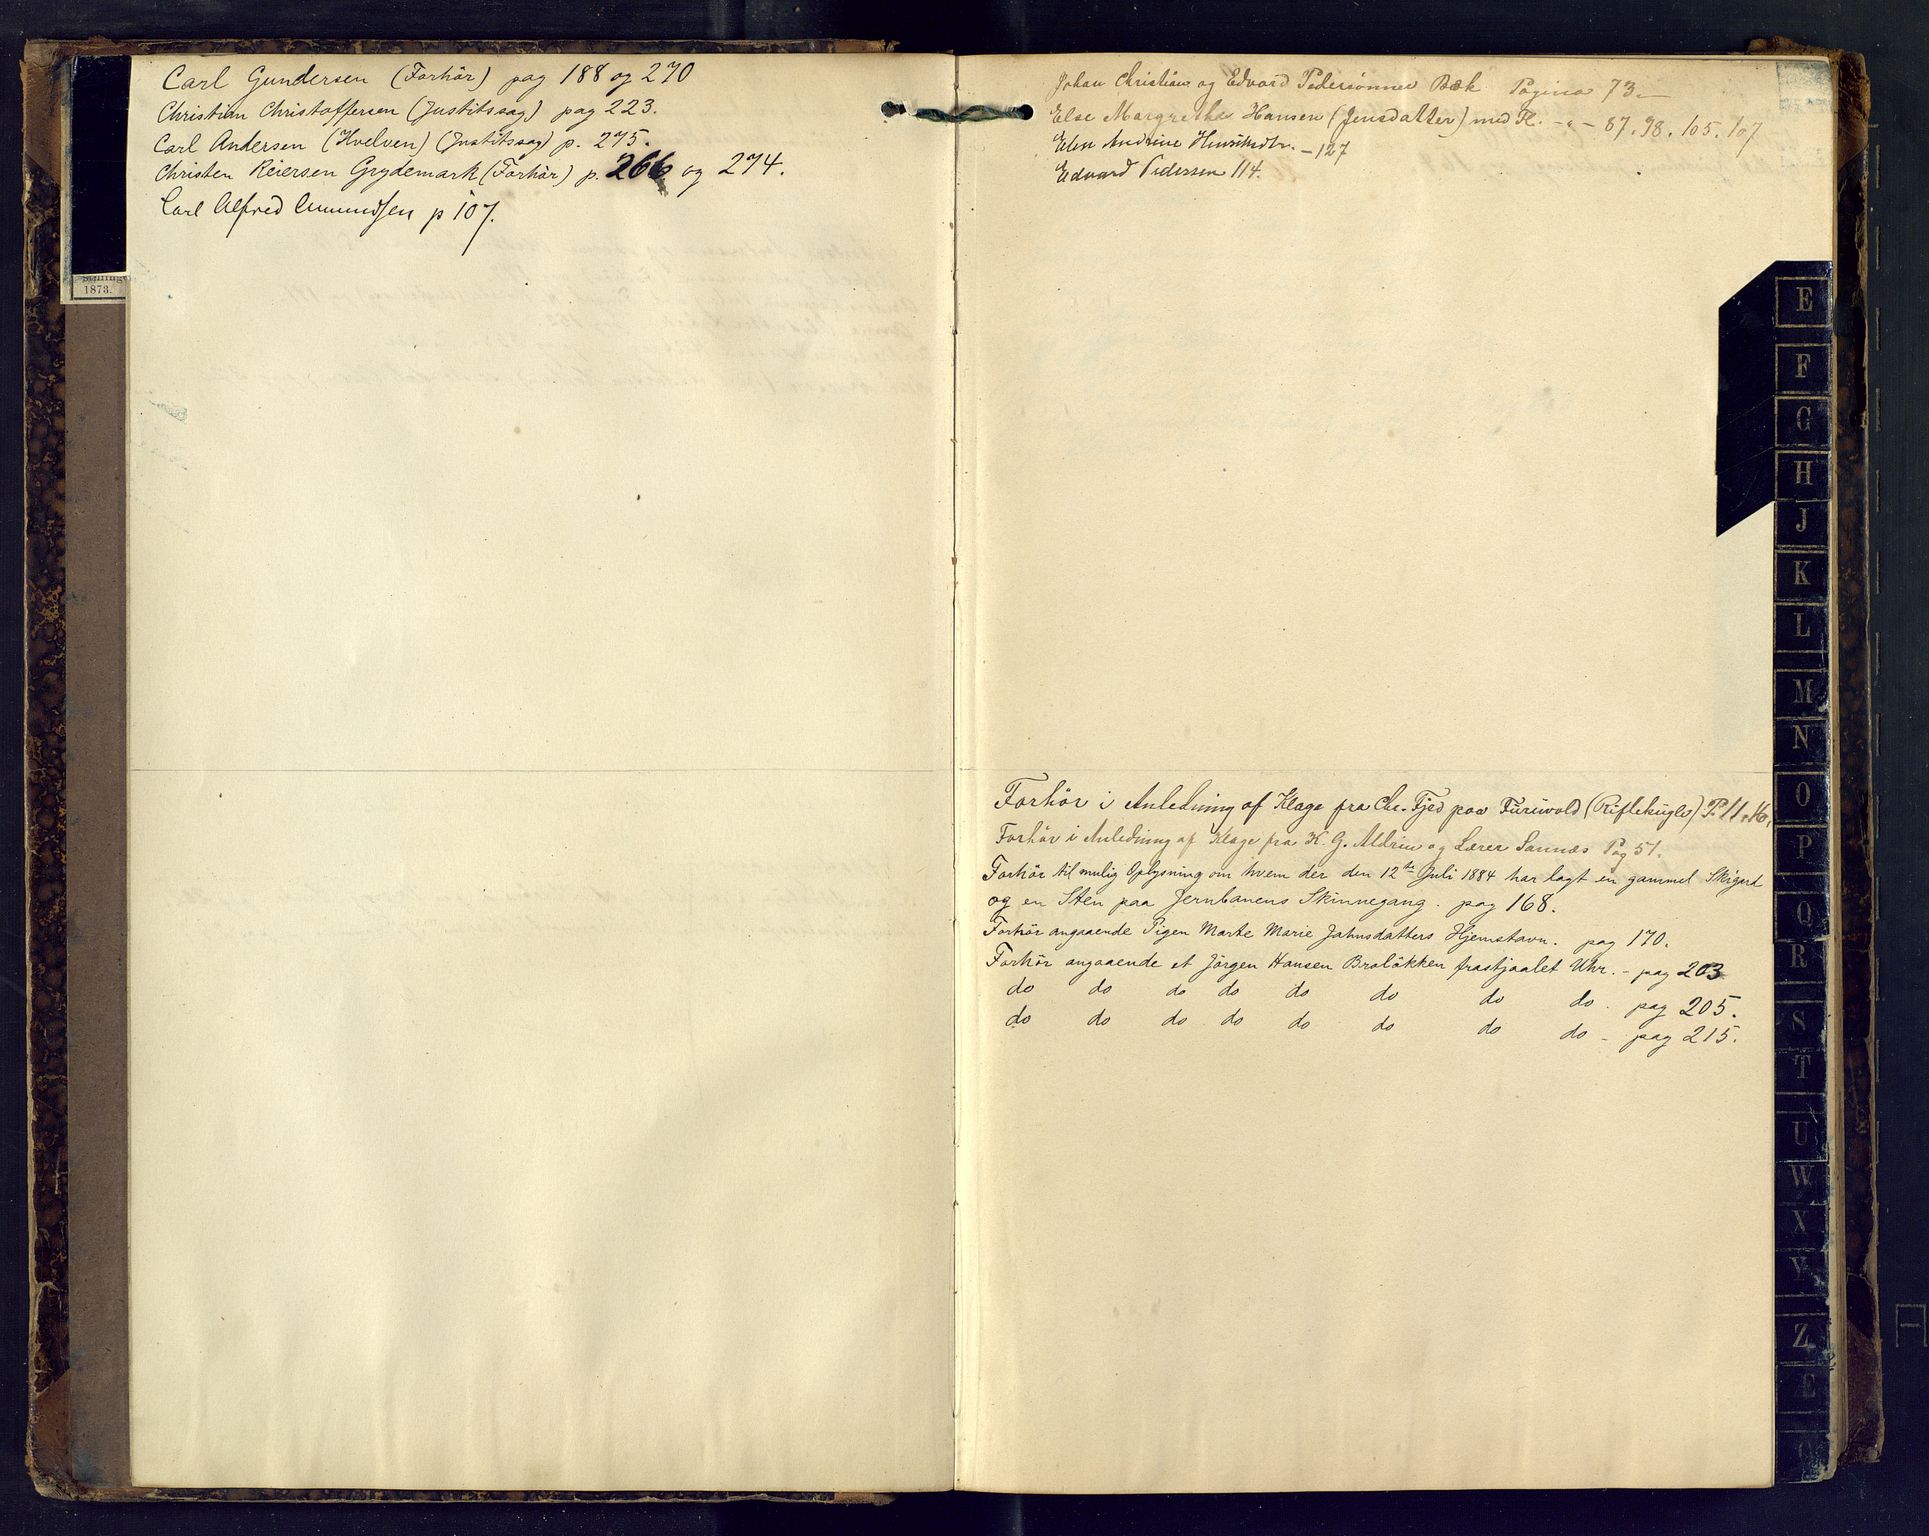 Carl Gundersen (Forhör) pag 188 og 270
Christian Christoffersen (Justitssag) pag 223.
Carl Andersen (Hvelven) (Justitssag) p. 275.
Christen Reiersen Grydemark (Forhör) p. 266 og 274.
Carl Alfred Amundsen p 107.
1873.
Johan Christian og Edvard Pedersönner Bæk Pagina 73.
Else Margrethe Hansen (Jensdatter) med Fl. - " - 87. 98. 105. 107
Elen Andrine Henriksdtr. - 127
Edvard Pedersen 114.
Forhör i Anledning af Klage fra Chr. Fjed paa Furuvold (Riflekugle) P. 11. 16.
Forhör i Anledning af Klage fra K. G. Aldrin og Lærer Sannæs Pag 51.
Forhör til mulig Oplysning om hvem der den 12te Juli 1884 har lagt en gammel Skigard
og en Sten paa Jernbanens Skinnegang. pag 168.
Forhör angaaende Pigen Marte Marie Jahnsdatters Hjemstavn. pag 170.
Forhör angaaende et Jörgen Hansen Bralökken frastjaalet Uhr. - pag 203
do do do do do do do do. pag 205.
do do do do do do do do - pag 215.
E
F
G
H
J
K
L
M
N
O
P
Q
R
S
T
U
W
X
Y
Z
Æ